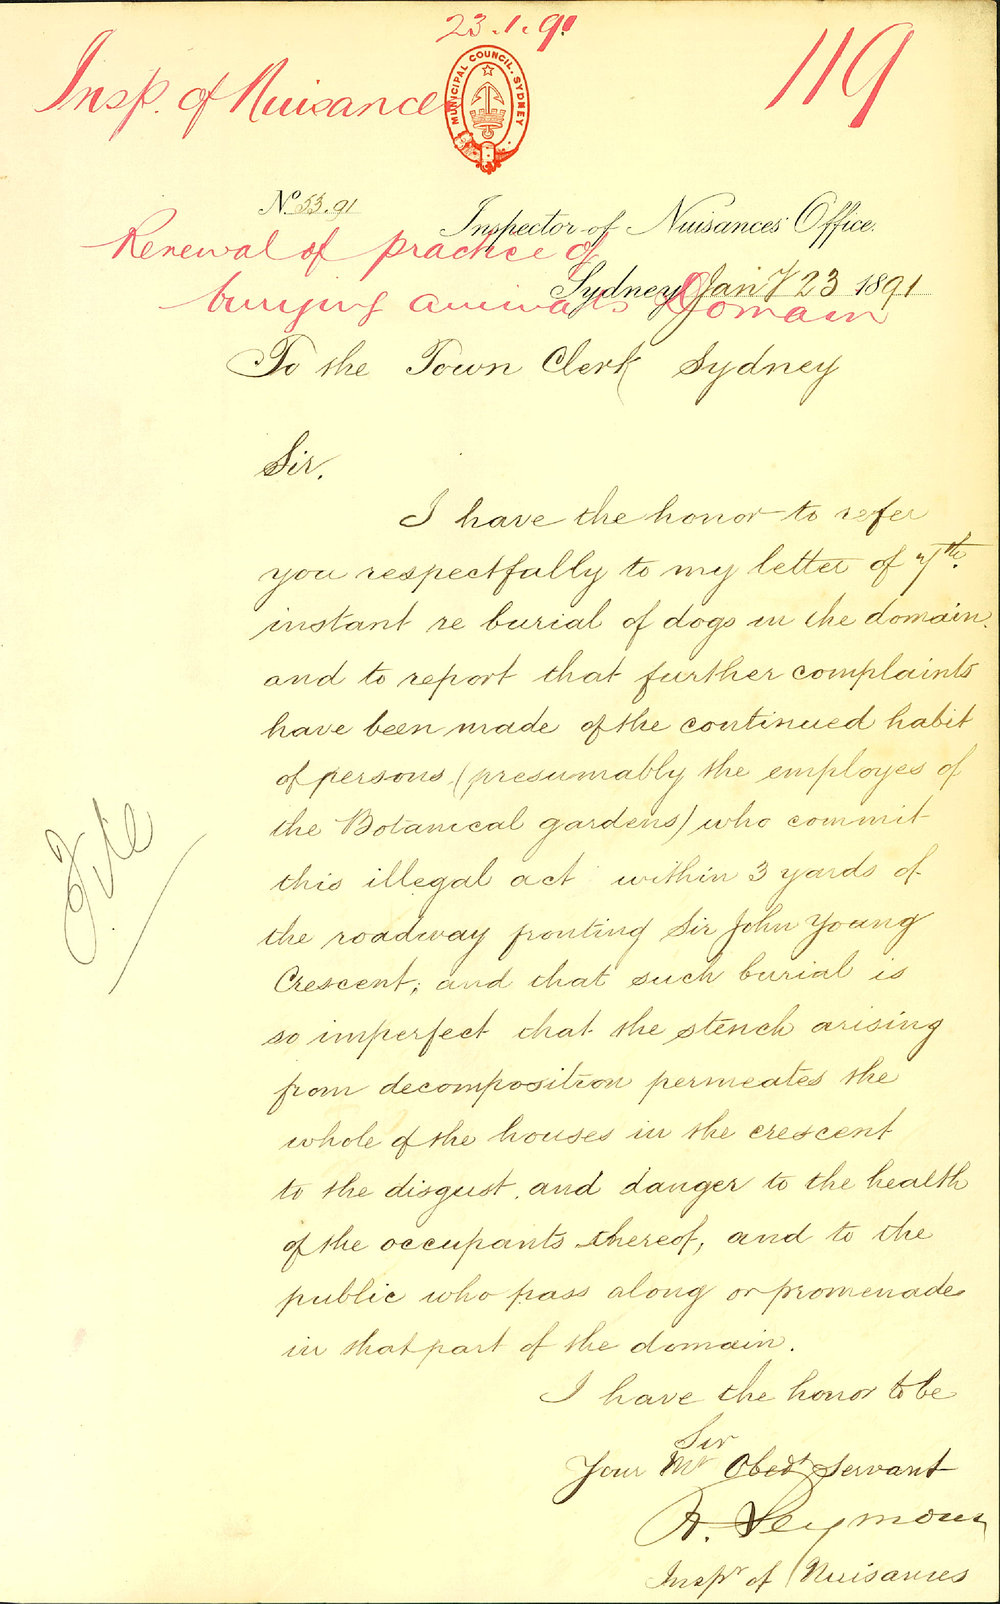 23.1.91
Insp. of Nuisance
119
MUNICIPAL COUNCIL, SYDNEY
No. 53.91
Inspector of Nuisances Office.
Renewal of practice of
Sydney Jany 23 1891
burying animals Domain
To the Town Clerk Sydney
Sir.
I have the honor to refer
you respectfully to my letter of 7th.
instant re burial of dogs in the domain.
and to report that further complaints
have been made of the continued habit
of persons (presumably the employes of
the Botanical gardens) who commit
this illegal act within 3 yards of
the roadway fronting Sir John Young
Crescent; and that such burial is
so imperfect that the stench arising
from decomposition permeates the
whole of the houses in the crescent
to the disgust, and danger to the health
of the occupants thereof, and to the
public who pass along or promenade
in that part of the domain.
I have the honor to be
Sir
Your Mt Obedt Servant
R. Seymour
Inspr of Nuisances
File